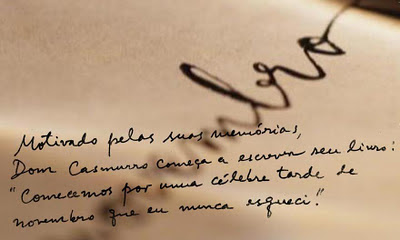 Motivado pelas suas memórias,
Dom Casmurro começa a escrever seu livro:
"Comecemos por uma célebre tarde de
novembro que eu nunca esqueci."